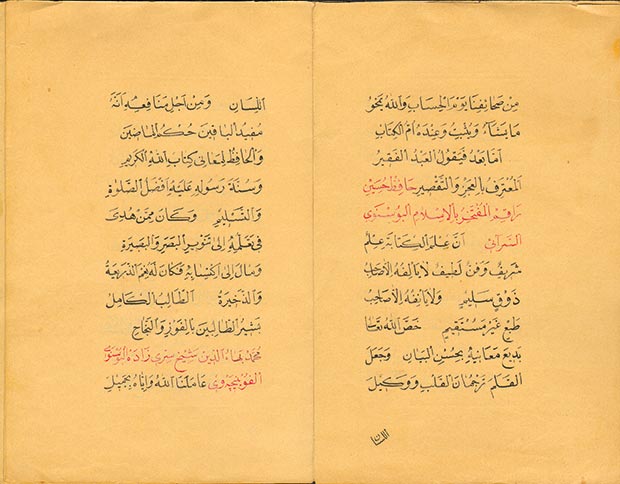 من صحائفنا يوم الحساب والله يمحو
ما يشاء ويثبت وعنده أم الكتاب
أما بعد فيقول العبد الفقير
المعترف بالعجز والتقصير حافظ حسين
راقم المفتخر بالإسلام البوسنوي
السرائي أن علم الكتابة علم
شريف وفن لطيف لا يألفه الا صاحب
ذوق سليم ولا يأنفه الا صاحب
طبع غير مستقيم خص الله تعالى
بديع معانيه بحسن البيان وجعل
القلم ترجمان القلب ووكيل
اللسان
اللسان ومن أجل منافعه أنه
مفيد الباقين حكم الماضين
والحافظ لمعاني كتاب الله الكريم
وسنة رسوله عليه أفضل الصلوة
والتسليم وكان ممن هدى
في تعلمه إلى تنوير البصر والبصيرة
ومال إلى اكتسابه فكان له نعم الذريعة
والذخيرة الطالب الكامل
بشير الطالبين بالفوز والنجاح
محمد بهاء الدين شيخ سري زاده البوسنوي
الفوينجوي عاملنا الله وإياه بجميل